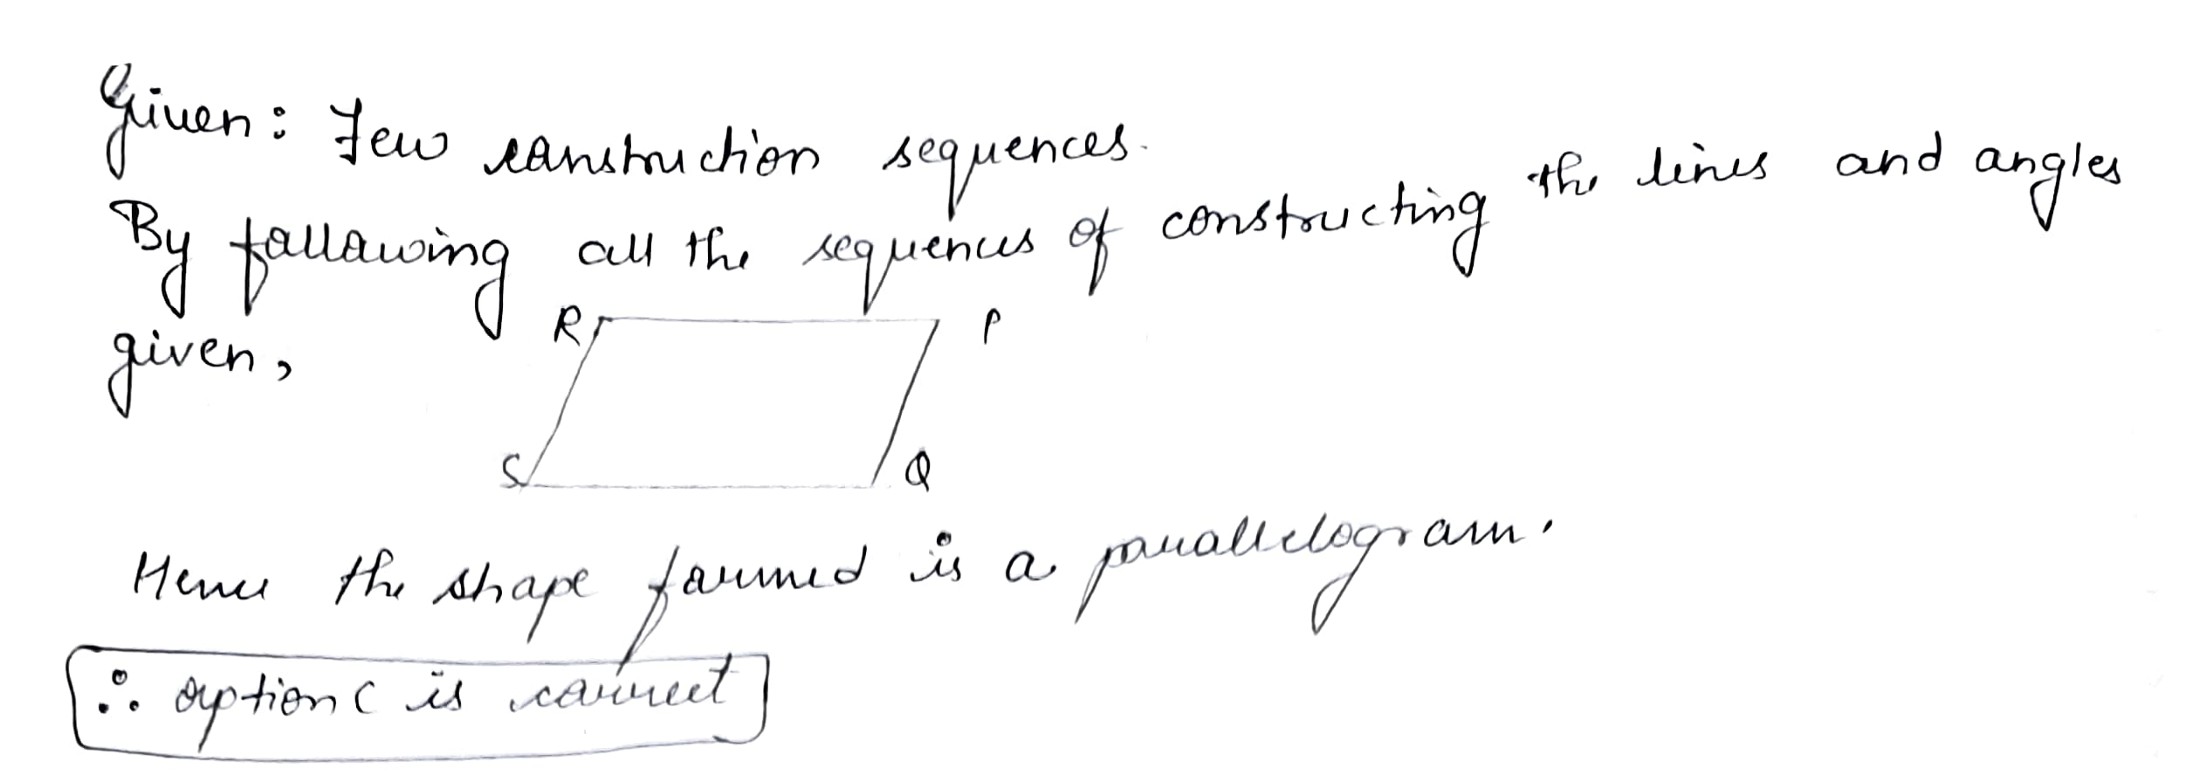 Given: Few construction sequences.
By following all the sequences of constructing the lines and angles
given,
R P
S Q
Hence the shape formed is a parallelogram.
∴ option C is correct